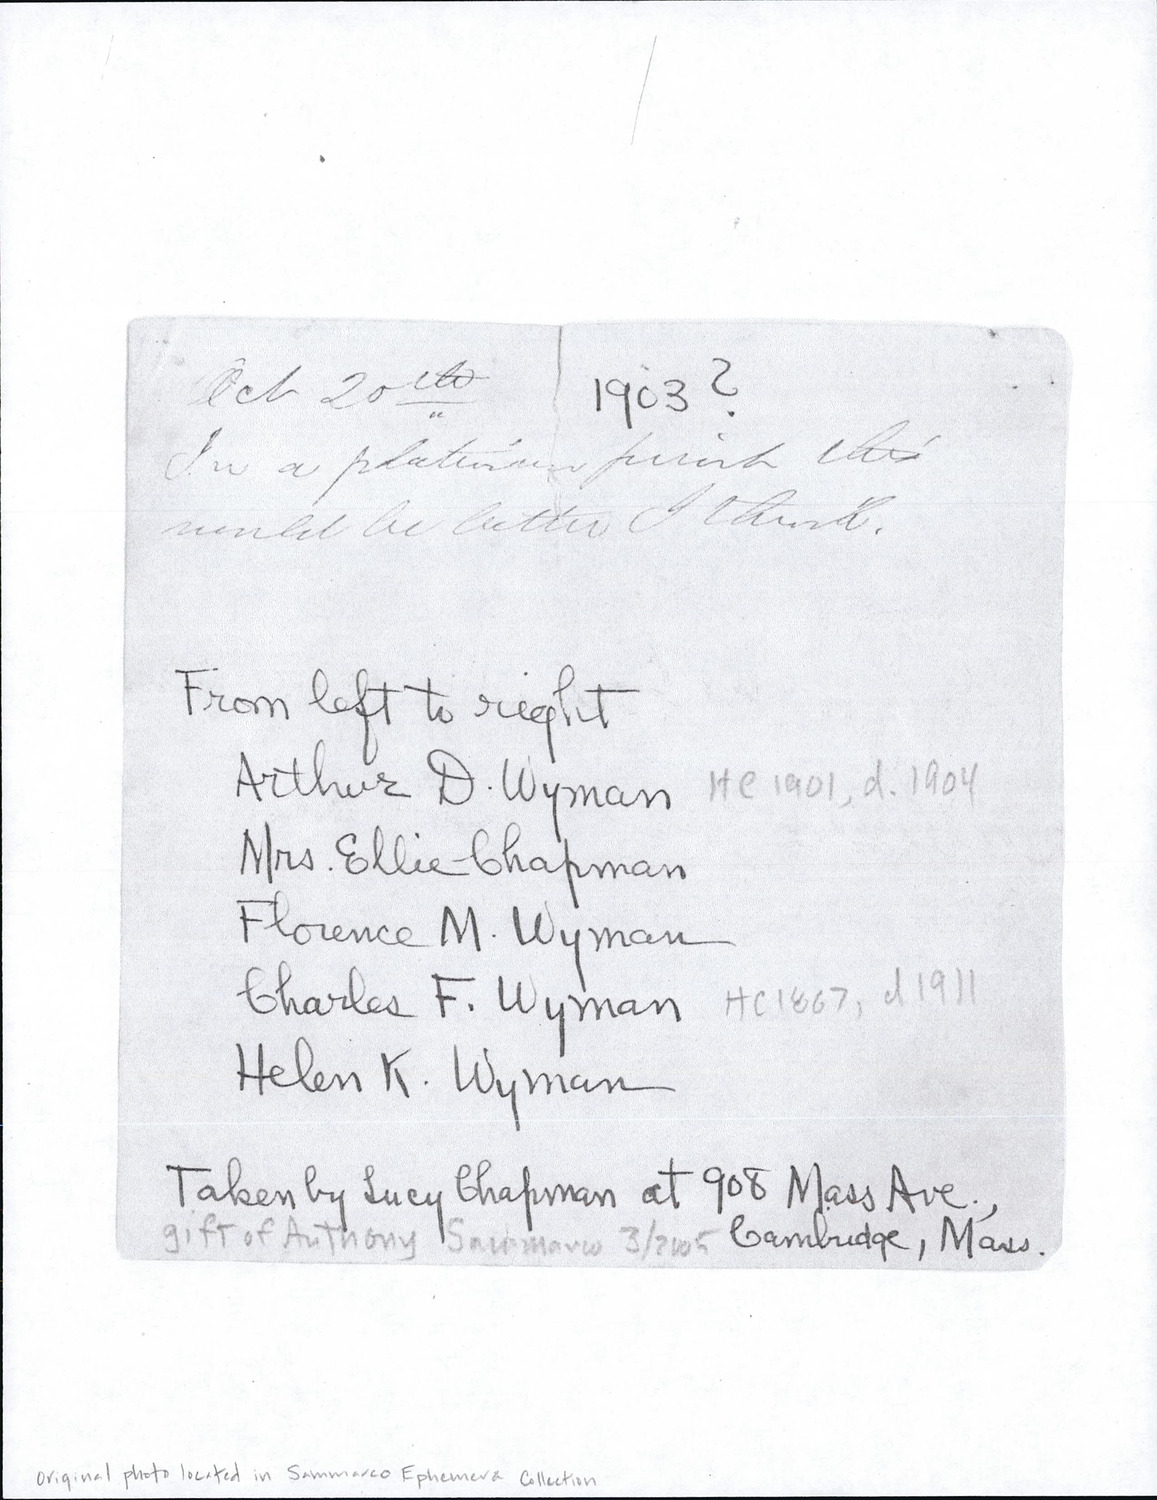 Oct 20th 1903?
In a platinum print this
would be better I think.
From left to right
Arthur D. Wyman HC 1901, d. 1904
Mrs. Ellie Chapman
Florence M. Wyman
Charles F. Wyman HC 1867, d 1911
Helen K. Wyman
Taken by Lucy Chapman at 908 Mass Ave.,
gift of Anthony Sammarco 3/2005 Cambridge, Mass.
Original photo located in Sammarco Ephemera Collection